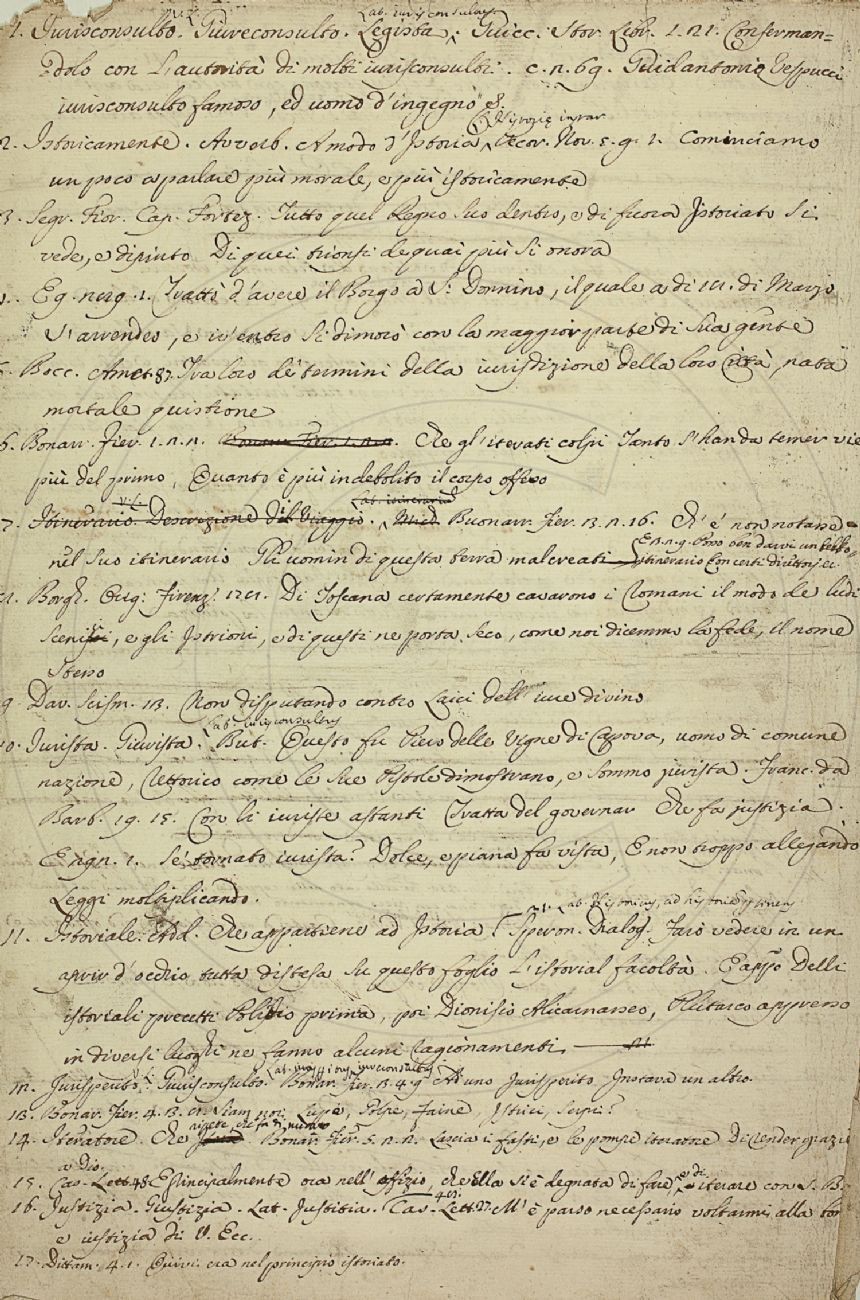 1. Iurisconsulto. Giureconsulto. Legista, Guicc. Stor. Libr. 1. 21. Conferman=
lat. iurisconsultus
dolo con l'autorità di molti iurisconsulti. c. n. 69. Guidantonio Vespucci
iurisconsulto famoso, ed uomo d'ingegno &.
2. Istoricamente. Avverb. A modo d'Istoria, Pecor. Nov. 5. g. 1. Cominciamo
un poco a parlare più morale, e più istoricamente
3. Segr. Fior. Cap. Fortez. Tutto quel Regno suo dentro, e di fuora Istoriato si
vede, e dipinto Di quei trionfi de quai più si onora
Trattò d'avere il Borgo a S. Donnino, il quale a di di Marzo
s'arrendeo, e iv'entro si dimorò con la maggior parte di sua gente
Bocc. Amet. 87. Tra loro de termini della iurisdizione della loro città, nata
mortale quistione
6. Bonarr. Fier. 1. 2. 2. Che gl'iterati colpi Tanto s'han da temer vie
più del primo, Quanto è più indebolito il corpo offeso
7. Itinerario. Descrizione di Viaggio. Buonarr. Fier. 3. 2. 16. Ch'è non notasse
lat. itinerarium
nel suo itinerario Gli uomin di questa terra malcreati
itinerario Con certi
Borgh. Orig. Firenz. Di Toscana certamente cavarono i Romani il modo de ludi
scenici, e gli Istrioni, e di questi ne porta seco, come noi dicemmo la fede, il nome
stesso
9. Dav. Scism. 13. Non disputando contro Laici dell'iure divino
lat. iurisconsultus
10. Iurista. Giurista. But. Questo fu Piero delle Vigne di Capova, uomo di comune
nazione, Rettorico come le sue Pistole dimostrano, e sommo jurista. Franc. da
Barb. 19. 15. Con li iuriste astanti Tratta del governar Che fa justizia.
E 191. 1. Se' tornato iurista? Dolce, e piana fa vista, E non troppo allegando
Leggi moltiplicando.
11. Istoriale. Add. Che appartiene ad Istoria. Speron. Dialog. Farò vedere in un
aprir d'occhio tutta distesa su questo foglio L'istorial facoltà. E appo Delli
istoriali precetti Polibio prima, poi Dionisio Alicarnasseo, Plutarco appresso
in diversi luoghi ne fanno alcuni ragionamenti.
12. Jurisperito. Giurisconsulto. Bonar. Fier. 3. 4. 9 Ad uno Jurisperito Instava un altro.
13. Bonar. Fier. 4. 3. Siam noi Lupe, Golpe, Faine, Istrici, Serpi?
14. Iteratore. Che Bonar. Fier. 5. 2. 2. Lascia i fasti, e le pompe iteratore Di render grazie
a Dio.
15. Cas. Lett. 48 E principalmente ora nell'offizio, che Ella si è degnata di fare, e di iterare con S. B.
16. Justizia. Giustizia. Lat. Justitia. Cas. Lett. 27. M'è parso necessario voltarmi alla bon
e iustizia di V. Ecc.
17. Dittam. 4. 1. Quivi era nel principio istoriato.